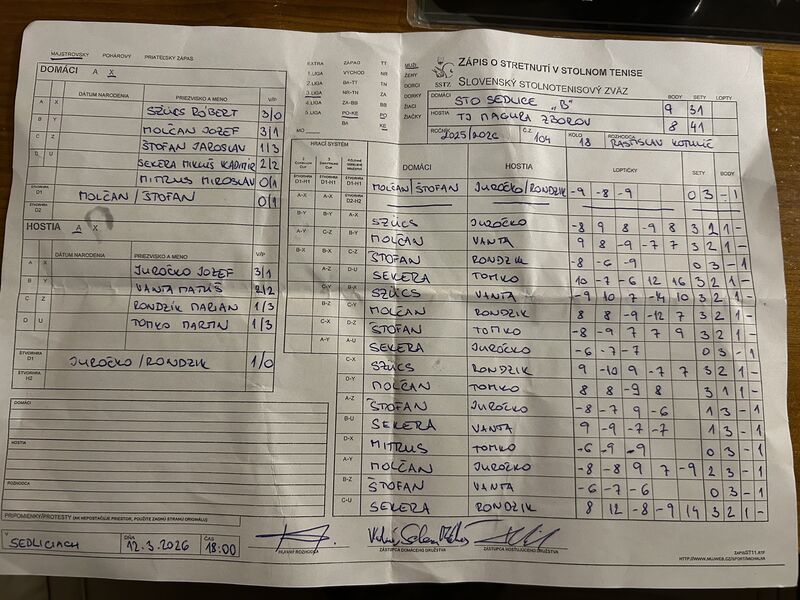 MAJSTROVSKÝ POHÁROVÝ PRIATEĽSKÝ ZÁPAS
DOMÁCI A X
DÁTUM NARODENIA PRIEZVISKO A MENO V/P
A X SZÜCS RÓBERT 3/0
B Y MOLČAN JOZEF 3/1
C Z ŠTOFAN JAROSLAV 1/3
D U SEKERA MIKUŠ VLADIMÍR 2/2
MITRUS MIROSLAV 0/1
ŠTVORHRA D1 MOLČAN/ŠTOFAN 0/1
ŠTVORHRA D2
HOSTIA A X
DÁTUM NARODENIA PRIEZVISKO A MENO V/P
A X JUROČKO JOZEF 3/1
B Y VANTA MATÚŠ 2/2
C Z RONDZÍK MARIAN 1/3
D U TOMKO MARTIN 1/3
ŠTVORHRA D1 JUROČKO/RONDZIK 1/0
ŠTVORHRA H2
DOMÁCI
HOSTIA
ROZHODCA
PRIPOMIENKY/PROTESTY (AK NEPOSTAČUJE PRIESTOR, POUŽITE ZADNÚ STRANU ORIGINÁLU)
V SEDLICIACH DŇA 12.3.2026 ČAS 18:00
EXTRA ZÁPAD TT
1.LIGA VÝCHOD NR
2.LIGA BA-TT TN
3.LIGA NR-TN ZA
4.LIGA ZA-BB BB
5.LIGA PO-KE PO
BA KE
MO
MUŽI
ŽENY
DORCI
ŽIACI
ŽIAČKY
SSTZ
ZÁPIS O STRETNUTÍ V STOLNOM TENISE
SLOVENSKÝ STOLNOTENISOVÝ ZVÄZ
BODY SETY LOPTY
DOMÁCI STO SEDLICE "B" 9 31
HOSTIA TJ MAGURA ZBOROV 8 41
ROČNÍK 2025/2026 Č.Z. 104 KOLO 18 ROZHODCA RASTISLAV
HRACÍ SYSTÉM
DOMÁCI HOSTIA LOPTIČKY SETY BODY
MOLČAN/ŠTOFAN JUROČKO/RONDZIK -9 -8 -9 0 3 - 1
SZÜCS JUROČKO -8 9 8 -9 8 3 2 1 -
MOLČAN VANTA 9 8 -9 -7 7 3 2 1 -
ŠTOFAN RONDZIK -8 -6 -9 0 3 - 1
SEKERA TOMKO 10 -7 -6 12 16 3 2 1 -
SZÜCS VANTA -9 10 7 -14 10 3 2 1 -
MOLČAN RONDZIK 8 8 -9 -12 7 3 2 1 -
ŠTOFAN TOMKO -8 -9 7 7 9 3 2 1 -
SEKERA JUROČKO -6 -7 -7 0 3 - 1
SZÜCS RONDZIK 9 -10 9 -7 7 3 2 1 -
MOLČAN TOMKO 8 8 -9 8 3 1 1 -
ŠTOFAN JUROČKO -8 -7 9 -6 1 3 - 1
SEKERA VANTA 9 -9 -7 -7 1 3 - 1
MITRUS TOMKO -6 -9 -9 0 3 - 1
MOLČAN JUROČKO -8 -8 9 7 -9 2 3 - 1
ŠTOFAN VANTA -6 -7 -6 0 3 - 1
SEKERA RONDZIK 8 12 -8 -9 14 3 2 1 -
HLAVNÝ ROZHODCA
ZÁSTUPCA DOMÁCEHO DRUŽSTVA
ZÁSTUPCA HOSŤUJÚCEHO DRUŽSTVA
ZAPISST11.RTF
HTTP://WWW.MUJWEB.CZ/SPORT/MICHALKA